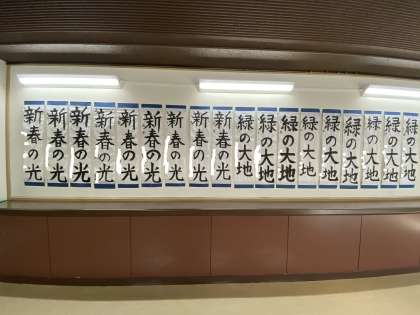 新春の光
新春の光
新春の光
新春の光
新春の光
新春の光
新春の光
新春の光
新春の光
緑の大地
緑の大地
緑の大地
緑の大地
緑の大地
緑の大地
緑の大地
緑の大地
緑の大地